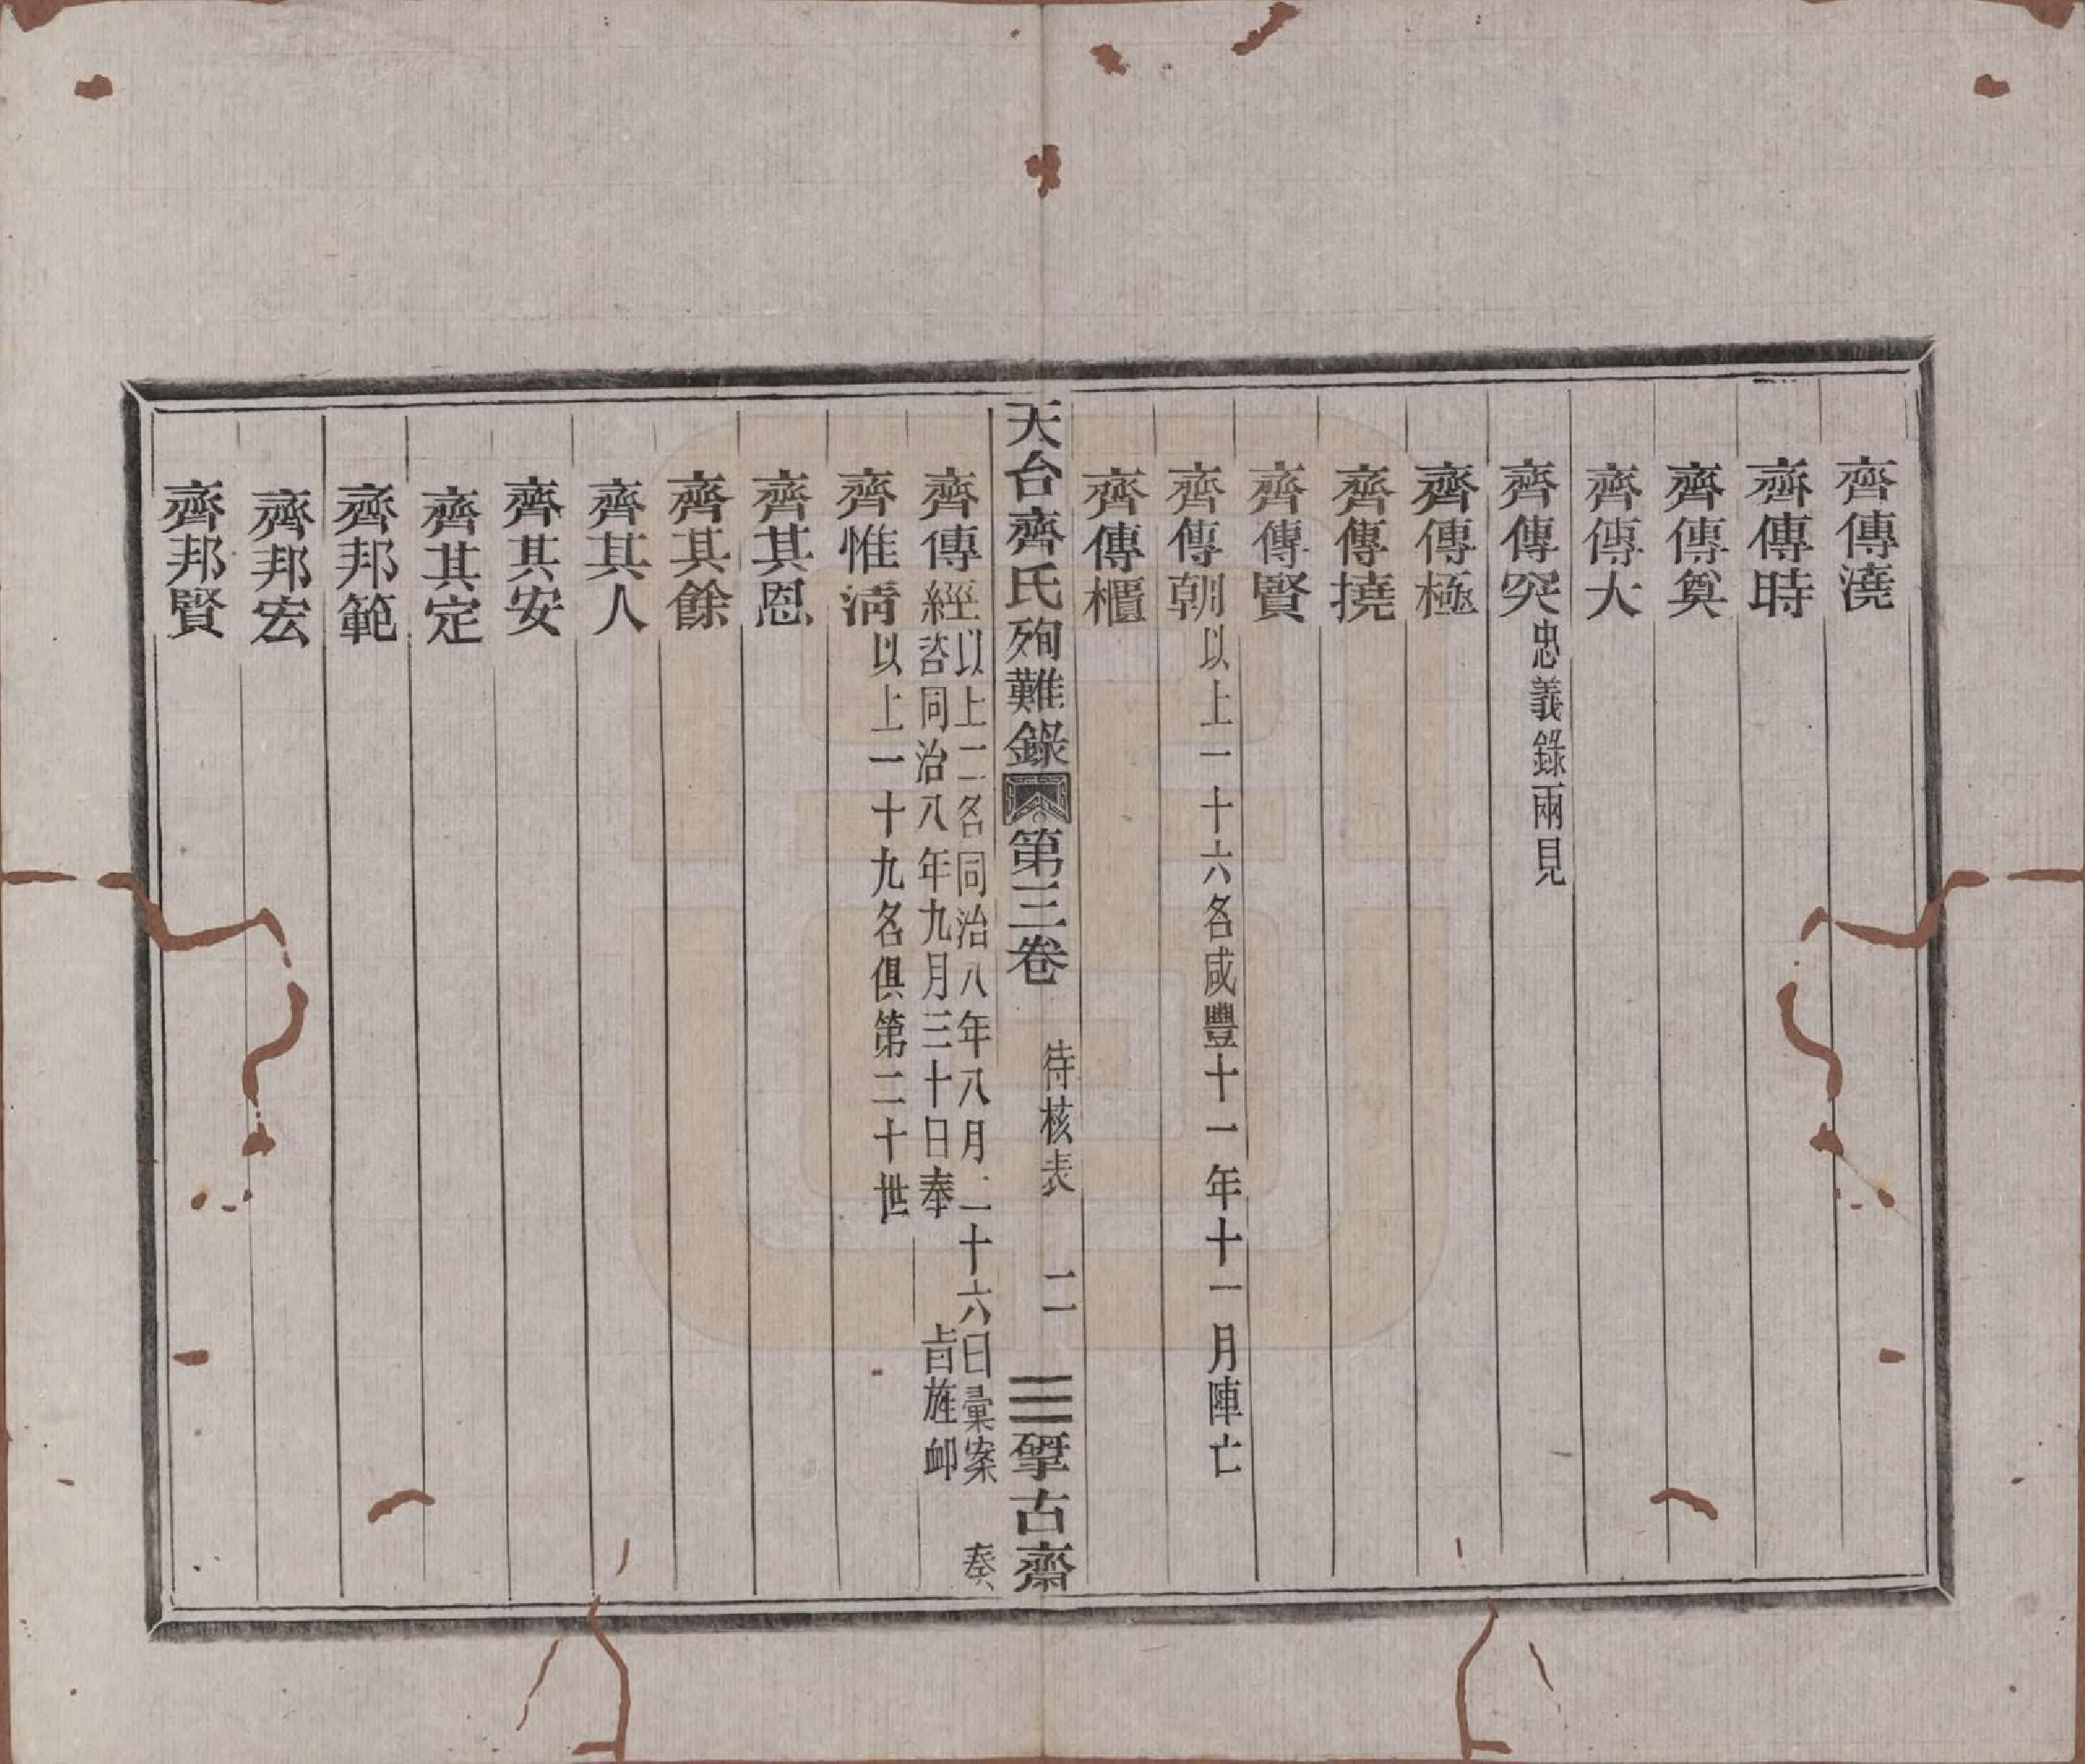 齊傳澆
齊傳時
齊傳奠
齊傳大
齊傳突忠義錄兩見
齊傳極
齊傳撓
齊傳賢
齊傳朝以上一十六名咸豐十一年十一月陣亡
齊傳櫃
天台齊氏殉難錄 第三卷 待核表 二 揅古齋
齊傳經以上二名同治八年八月二十六日彙案 奏
咨同治八年九月三十日奉 旨旌卹
齊惟淸以上一十九名俱第二十世
齊其恩
齊其餘
齊其人
齊其安
齊其定
齊邦範
齊邦宏
齊邦賢